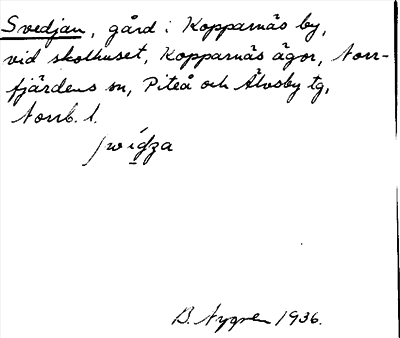 Svedjan, gård i Kopparnäs by,
vid skolhuset, Kopparnäs ägor, Norr-
fjärdens sn, Piteå och Älvsby tg,
Norrb. l.
B. Nygren 1936.